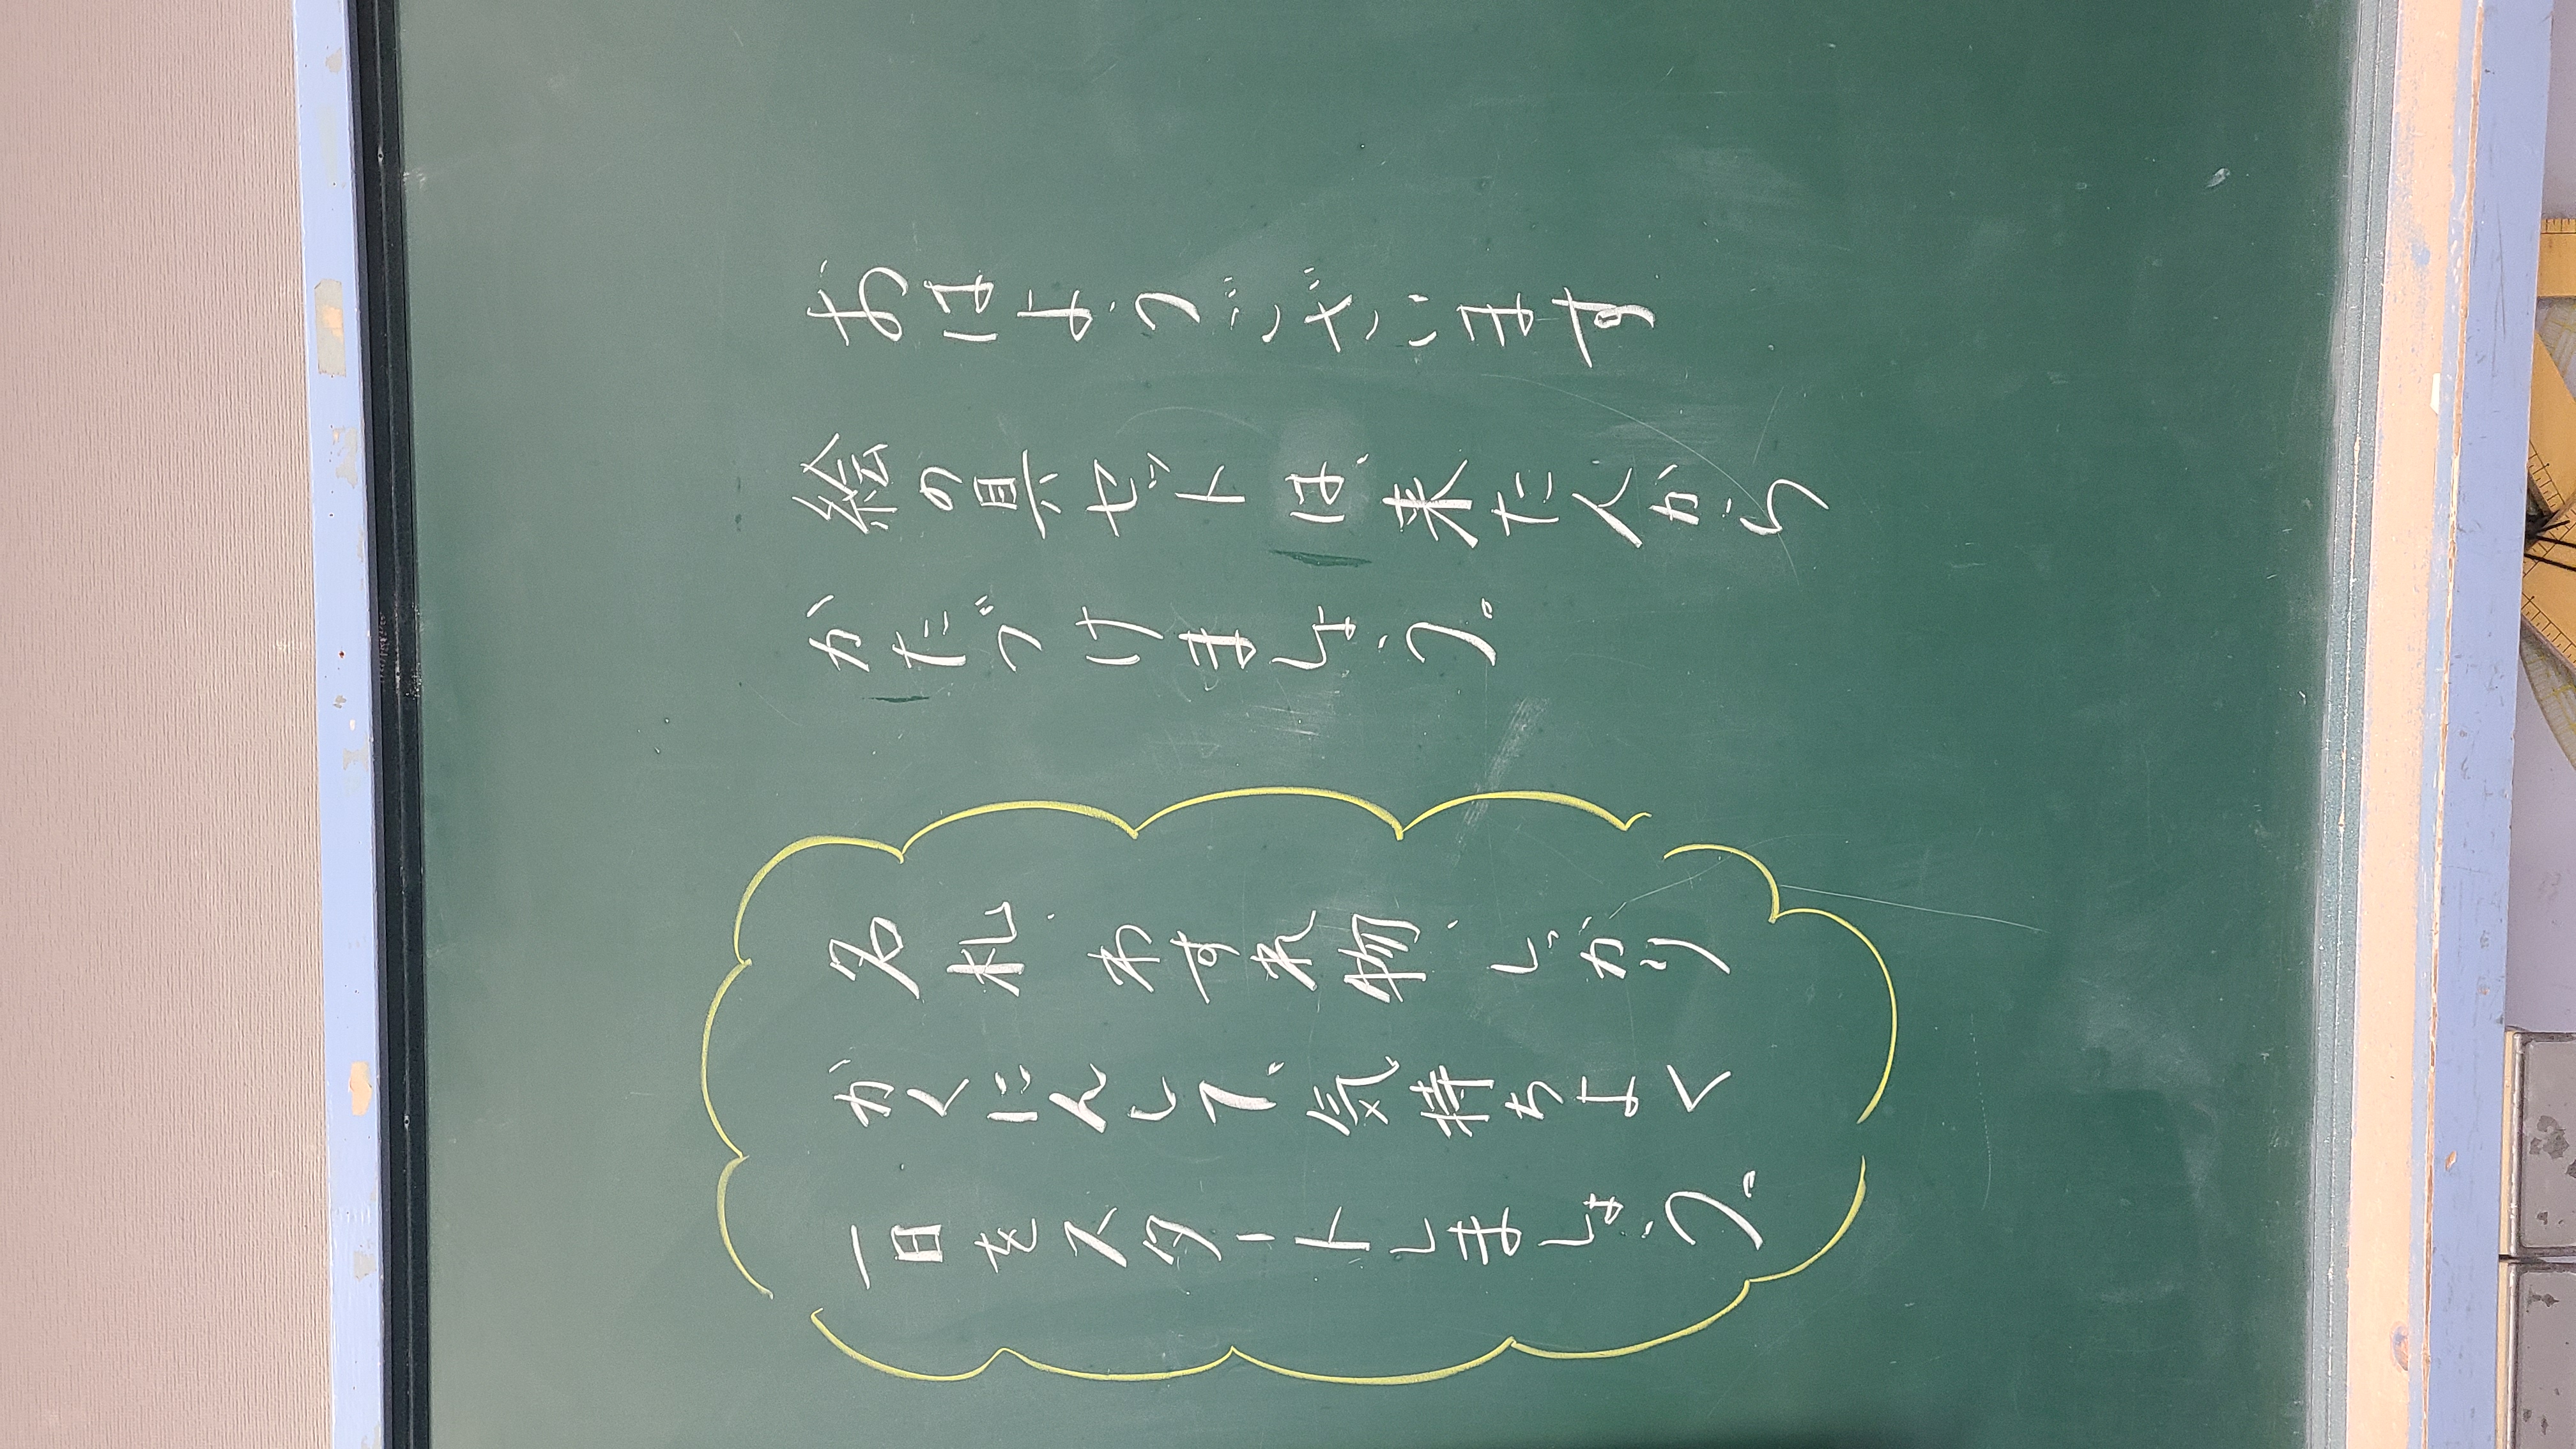 おはようございます
絵の具セットは来た人から
かたづけましょう。
名札、わすれ物、しっかり
かくにんして、気持ちよく
一日をスタートしましょう。